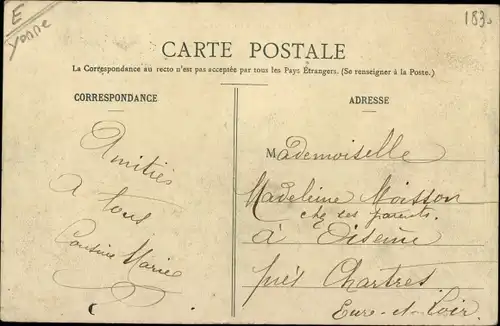 E
Yonne
183
CARTE POSTALE
La Correspondance au recto n'est pas acceptée par tous les Pays Étrangers. (Se renseigner à la Poste.)
CORRESPONDANCE
Amitiés
a tous
Cousine Marie
ADRESSE
Mademoiselle
Madeleine Moisson
chez ses parents.
à
près Chartres
Eure-et-Loir.